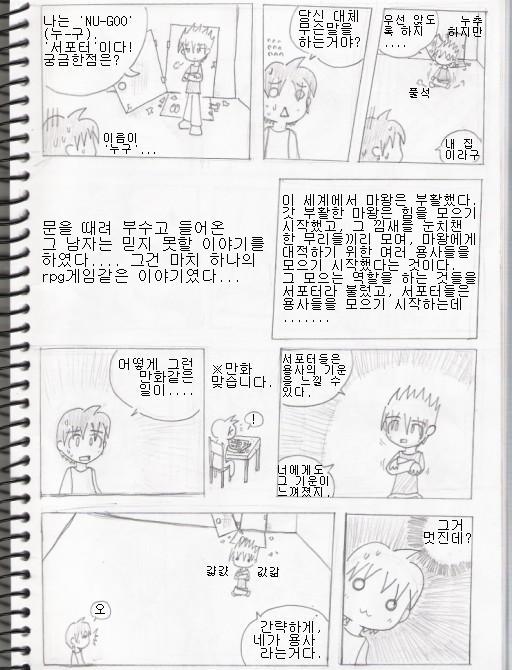 나는 'NU-GOO'
(누-구).
'서포터'이다!
궁금한점은?
이름이
'누구'...
당신 대체
무슨말을
하는거야?
우선 앉도
록 하지
....
누추
하지만
풀석
내 집
이라구
문을 때려 부수고 들어온
그 남자는 믿지 못할 이야기를
하였다.... 그건 마치 하나의
rpg게임같은 이야기였다...
이 세계에서 마왕은 부활했다.
갓 부활한 마왕은 힘을 모으기
시작했고, 그 낌새를 눈치챈
한 무리들끼리 모여, 마왕에게
대적하기 위한 여러 용사들을
모으기 시작했다는 것이다.
그 모으는 역할을 하는 것들을
서포터라 불렀고, 서포터들은
용사들을 모으기 시작하는데
.......
어떻게 그런
만화같은
일이....
※만화
맞습니다.
!
서포터들은
용사의 기운
을 느낄 수
있다.
너에게도
그 기운이
느껴졌지.
오
걃걃
값값
간략하게,
네가 용사
라는거다.
그거
멋진데?